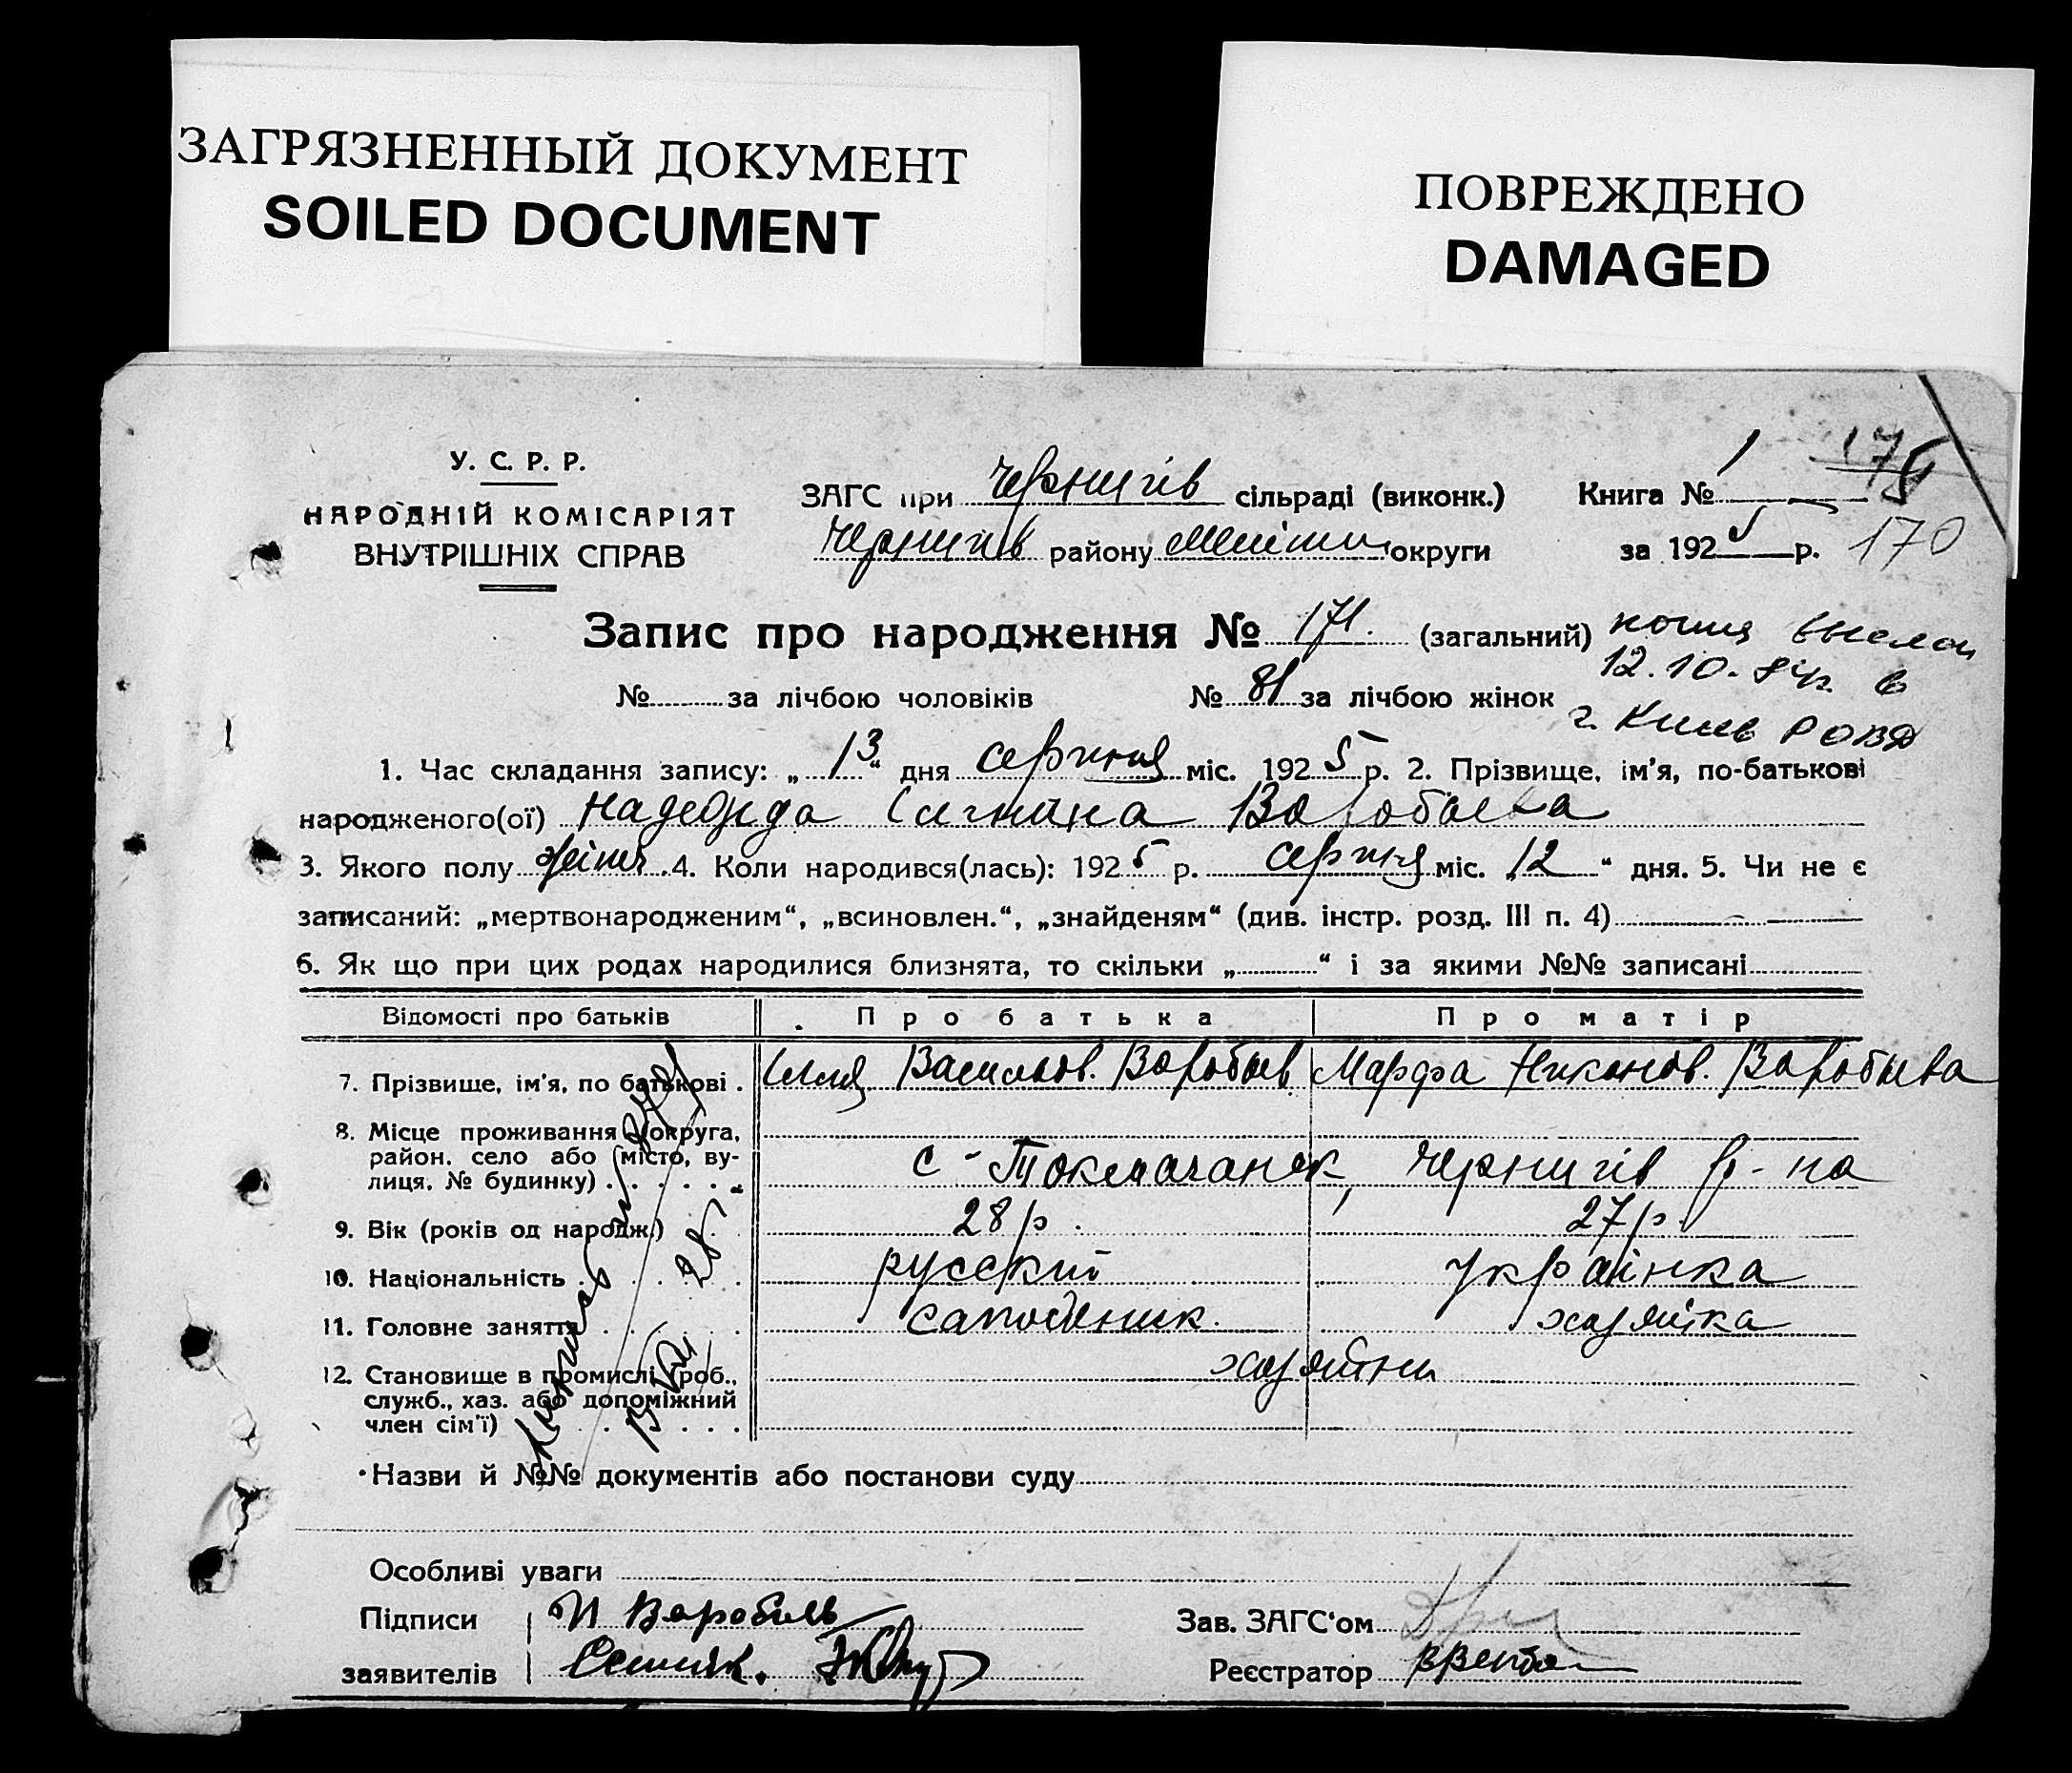 ЗАГРЯЗНЕННЫЙ ДОКУМЕНТ
SOILED DOCUMENT
ПОВРЕЖДЕНО
DAMAGED
У. С. Р. Р.
НАРОДНІЙ КОМІСАРІЯТ
ВНУТРІШНІХ СПРАВ
ЗАГС при Чернигів сільраді (виконк.)
Чернигів району округи
Книга № 1
за 1925 р. 170
Запис про народження № 171. (загальний)
12.10. в
г. Киев РОВД
№ за лічбою чоловіків № 81 за лічбою жінок
1. Час складання запису: „13“ дня серпня міс. 1925 р. 2. Прізвище, ім'я, по-батькові
народженого(ої) Надежда Воробьева
3. Якого полу жіноч. 4. Коли народився(лась): 1925 р. серпня міс. „12“ дня. 5. Чи не є
записаний: „мертвонародженим“, „всиновлен.“, „знайденям“ (див. інстр. розд. III п. 4)
6. Як що при цих родах народилися близнята, то скільки „ “ і за якими №№ записані
Відомості про батьків Про батька Про матір
7. Прізвище, ім'я, по батькові . Илля Васильов. Воробьев Марфа Никонов. Воробьева
8. Місце проживання (округа,
район, село або місто, ву-
лиця, № будинку) . . . . . . с-Токмачанск, Чернигів р-на
9. Вік (років од народж.) 28 р. 27 р.
10. Національність . . . . русский українка
11. Головне заняття . . . . хазяйка
12. Становище в промислі (роб., хазяйни
служб., хаз. або допоміжний
член сім'ї) . . . . .
Назви й №№ документів або постанови суду
Особливі уваги
Підписи И Воробьев
заявителів
Зав. ЗАГС'ом
Реєстратор